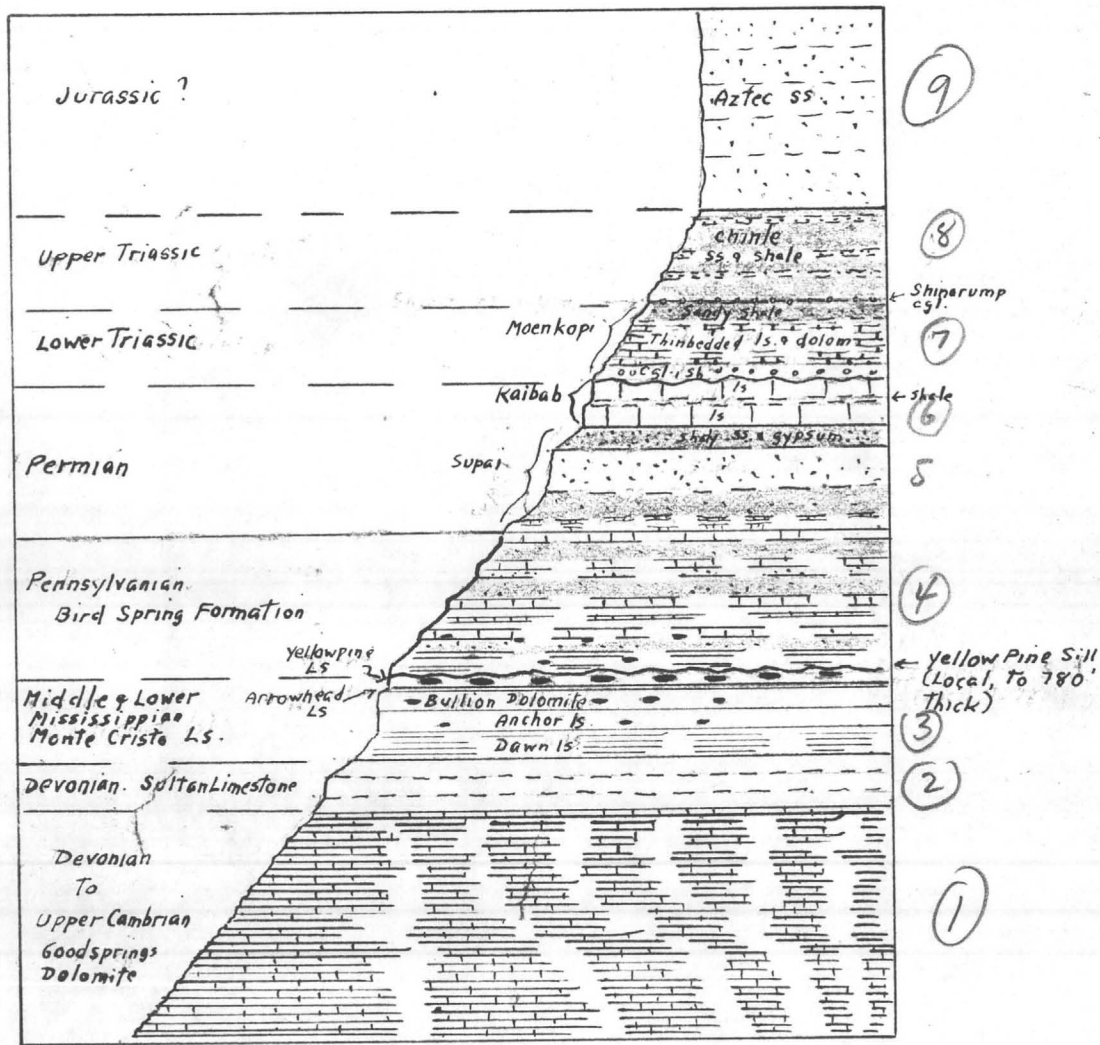 Jurassic ?
Aztec ss.
9
Upper Triassic
Chinle
ss & shale
8
Shinarump
cgl.
Sandy shale
Moenkopi
Lower Triassic
Thinbedded ls. & dolom
7
cgl., sh
Kaibab
ls
shale
ls
6
shdy ss & gypsum
Permian
Supai
5
Pennsylvanian
Bird Spring Formation
4
Yellowpine
LS
Yellow Pine Sill
(Local, To 780'
Thick)
Arrowhead
LS
Middle & Lower
Mississippian
Monte Cristo Ls.
Bullion Dolomite
Anchor ls
Dawn ls.
3
Devonian. Sultan Limestone
2
Devonian
To
Upper Cambrian
Goodsprings
Dolomite
1